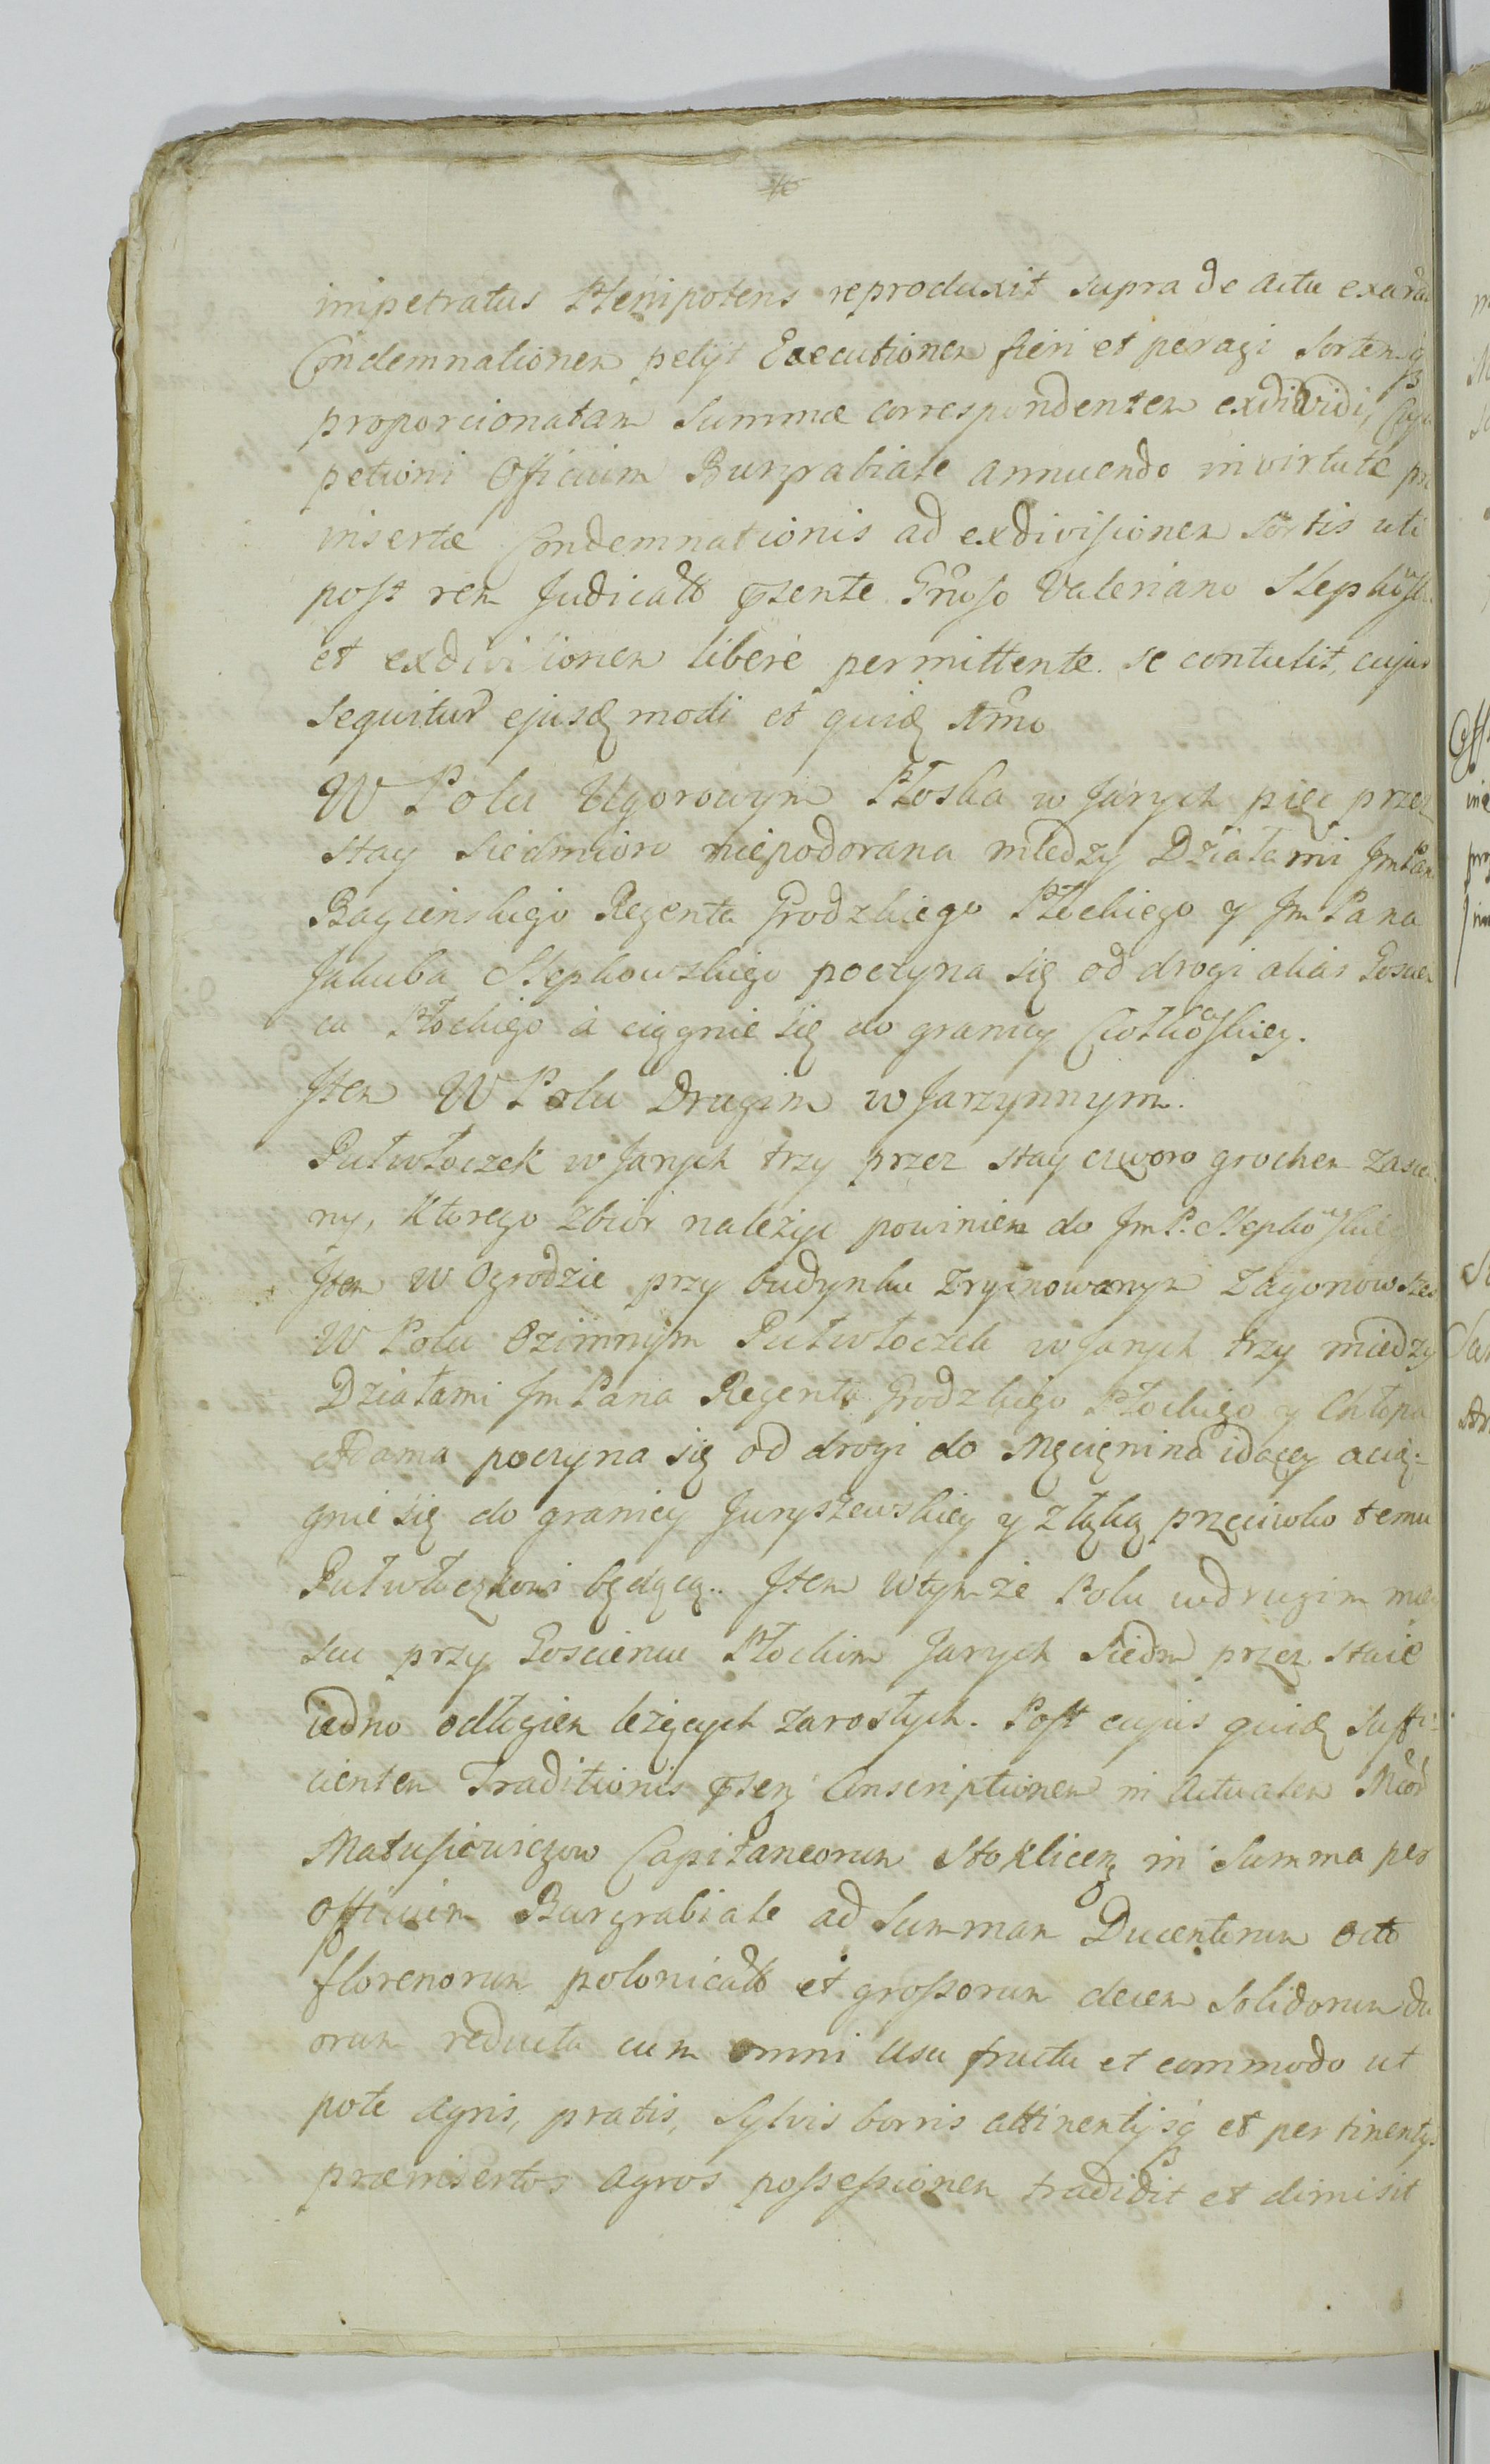 impetratus Plenipotens reproduxit supra de actu exara
Condemnationem petijt Executionem fieri et peragi Sortemq3
proporcionatam Summæ correspondentem exdividi, Cuju
petioni Officium Burgrabiale annuendo in virtute præ
insertæ Condemnationis ad exdivisionem sortis uti
post rem Judicatã pñsente Gñoso Valeriano Slepkow̃s
et exdivisionem liberè permittente se contulit, cujus
Sequitur ejusdẽ modi et quidẽ Primo
W Polu Ugorowym Płoska w Jarych pięć przez
stay siedmioro niepodorana między Działami Jm Pan
Bagieńskiego Regenta Grodzkiego Płockiego y Jm Pana
Jakuba Slepkowskiego poczyna się od drogi alias Goscie
ca Płockiego a ciągnie się do granicy Ciołkow̃skiey.
Jtem W Polu Drugim w Jarzynnym.
Pułwłoczek w Jarych trzy przez stay czworo grochem zasia
ny, którego zbior należyć powinien do Jm P. Slepkow̃skieg
Jtem w Ogrodzie przy budynku zrujnowanym Zagonow sześ
W Polu Ozimnym Pułwłoczek w Jarych trzy między
Działami Jm Pana Regenta Grodzkiego Płockiego y Chłopa
Adama poczyna się od drogi do Męcięnina idącey a cią-
gnie się do granicy Juryszewskiey y z Łąką przeciwko temu
Pułwłoczkowi będącą.. Jtem w tymże Polu w drugim miey
scu przy Goscieńcu Płockim Jarych siedm przez staie
iedno odłogiem leżących zarosłych. Post cujus quidẽ suffi-
cientem Traditionis pñsenq Conscriptionem in actualem Mãor
Matusiewiczow Capitaneorum Stoklicenq in Summa per
Officium Burgrabiale ad Summam Ducentorum octo
florenorum polonicalĩ et grossorum decem Solidorum du
orum reducta cum omni usu fructu et commodo ut
pote agris, pratis, Sylvis borris attinentijsq3 et pertinentijs
præinsertos agros possessionem tradidit et dimisit